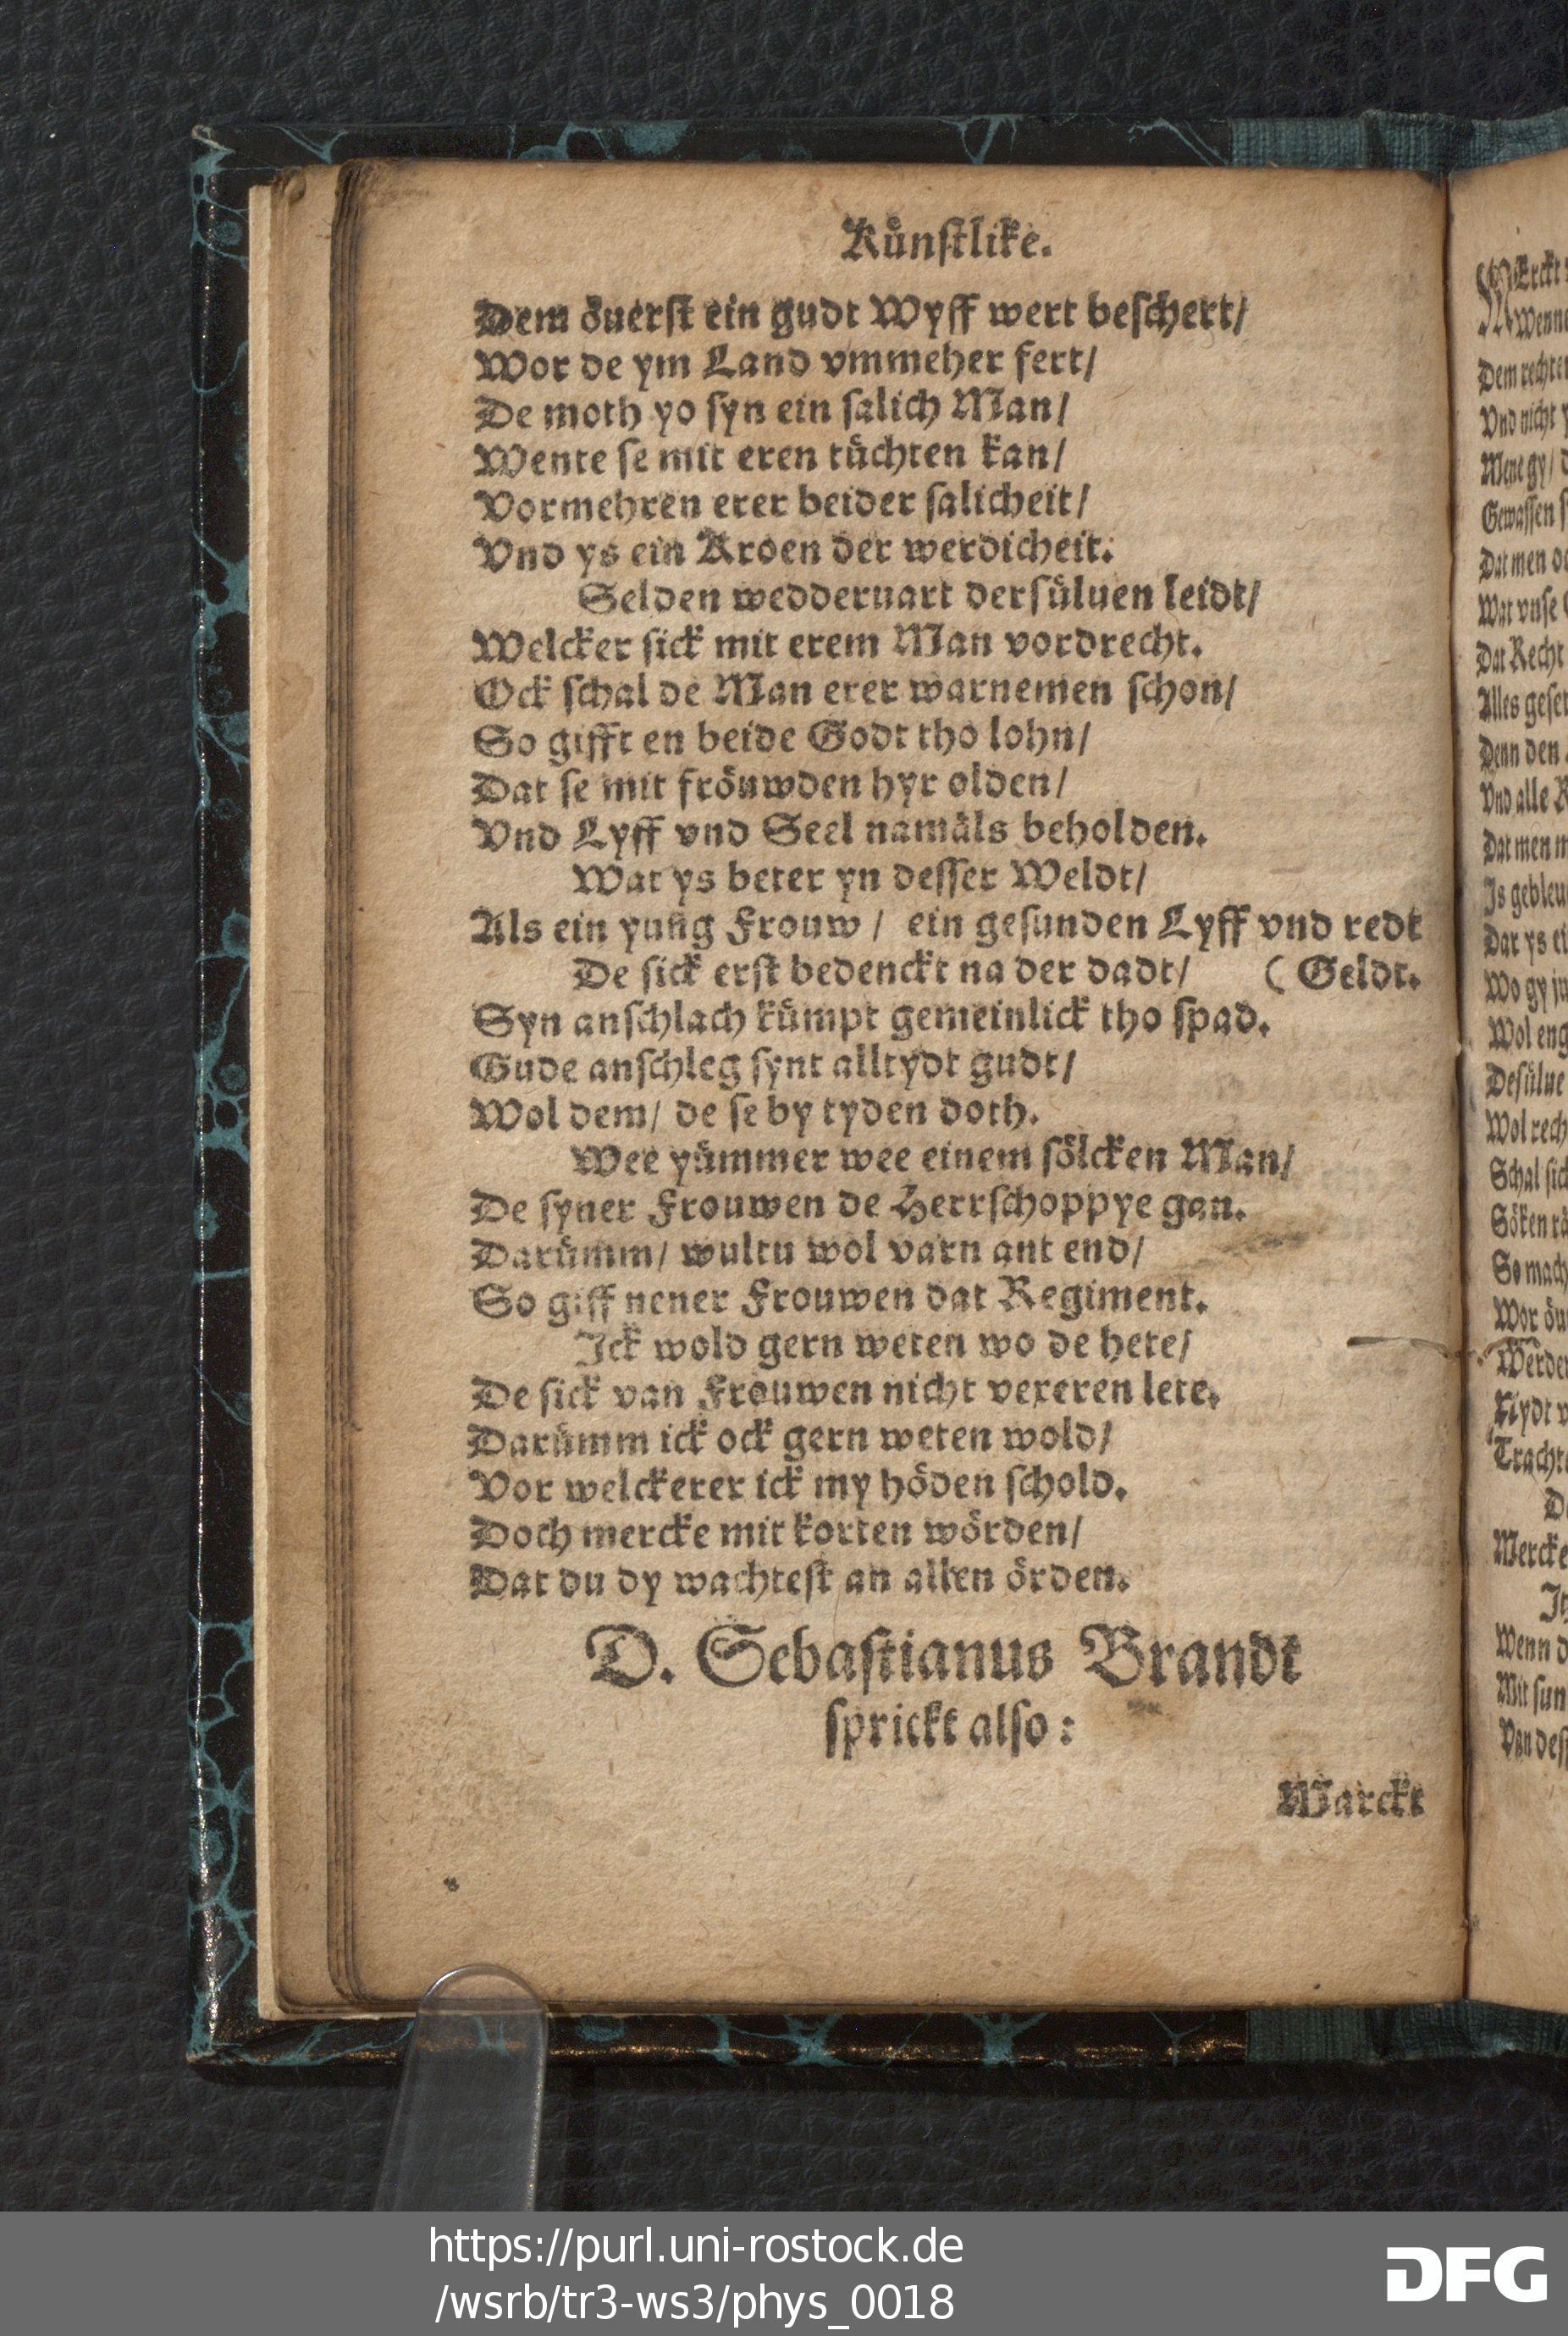 Kůnſtlike.
Dem öuerſt ein gudt Wyff wert beſchert/
Wor de ym Land vmmeher fert/
De moth yo ſyn ein ſalich Man/
Wente ſe mit eren tüchten kan/
Vormehren erer beider ſalicheit/
Vnd ys ein Kroen der werdicheit.
Selden wedderuart derſüluen leidt/
Welcker ſick mit erem Man vordrecht.
Ock ſchal de Man erer warnemen ſchon/
So gifft en beide Godt tho lohn/
Dat ſe mit fröuwden hyr olden/
Vnd Lyff vnd Seel namäls beholden.
Wat ys beter yn deſſer Weldt/
Als ein yung Frouw / ein geſunden Lyff vnd redt
De ſick erſt bedenckt na der dadt/ ( Geldt.
Syn anſchlach kümpt gemeinlick tho ſpad.
Gude anſchleg ſynt alltydt gudt/
Wol dem/ de ſe by tyden doth.
Wee yümmer wee einem ſölcken Man/
De ſyner Frouwen de Herrſchoppye gan.
Darümm/ wultu wol varn ant end/
So giff nener Frouwen dat Regiment.
Ick wold gern weten wo de hete/
De ſick van Frouwen nicht vexeren lete.
Darümm ick ock gern weten wold/
Vor welckerer ick my höden ſchold.
Doch mercke mit korten wörden/
Dat du dy wachteſt an allen örden.
D. Sebaſtianus Brandt
ſprickt alſo:
Warckt
MErckt
Wenne
Dem rechten
Vnd nicht
Mene gy/
Gewaſſen
Dat men
Wat vnſe
Dat Recht
Alles
Denn den
Vnd alle
Dat men
Is
Dat ys
Wo gy
Wol
Deſülue
Wol
Schal
Söken
So
Wor
Nydt
Mercke
Wenn
Mit
Van
https://purl.uni-rostock.de
/wsrb/tr3-ws3/phys_0018
DFG